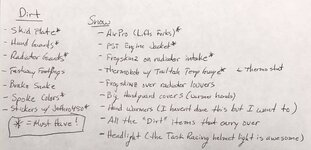 Dirt
- Skid Plate*
- Hand Guards*
- Radiator Guards*
- Fastway Footpegs
- Brake Snake
- Spoke Colors*
- Stickers w/
* = Must Have!
Snow
- AirPro (Lifts Forks)*
- PSI Engine Jacket*
- Frogskinz on radiator intake*
- Thermobob w/ Trailtech Temp Gauge* & Thermostat
- Frogskinz over radiator louvers
- Big Handguard covers (warmer hands)
- Hand warmers (I haven't done this but I want to)
- All the "Dirt" items that carry over
- Headlight (the Task Racing helmet light is awesome)